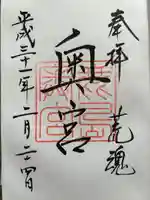 奉拝 荒魂
奥宮
平成三十一年二月二四日